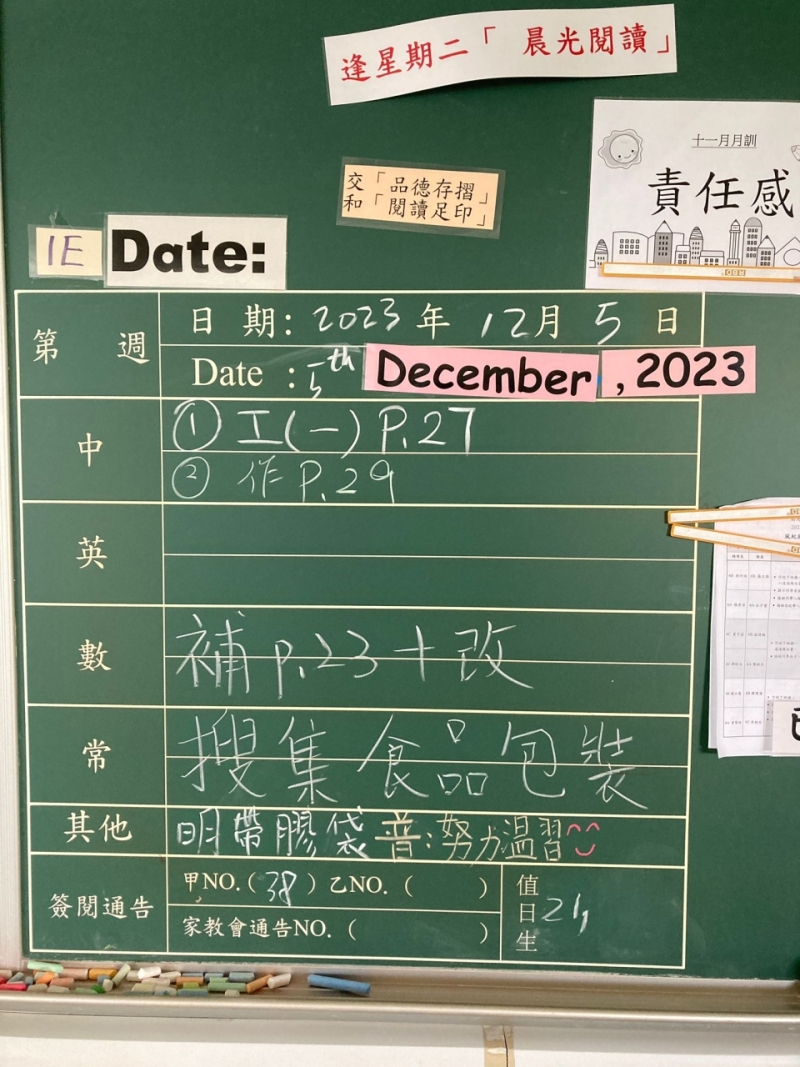 逢星期二「 晨光閱讀」
十一月月訓
責任感
交「品德存摺」
和「閱讀足印」
1E Date:
第 週
日 期: 2023 年 12月 5 日
Date : 5th December , 2023
中
① 工(一) P.27
② 作 P.29
英
數
補 p.23 + 改
常
搜集食品包裝
其他
明帶膠袋 普:努力溫習
簽閱通告
甲NO.( 38 ) 乙NO. ( )
家教會通告NO. ( )
值日生